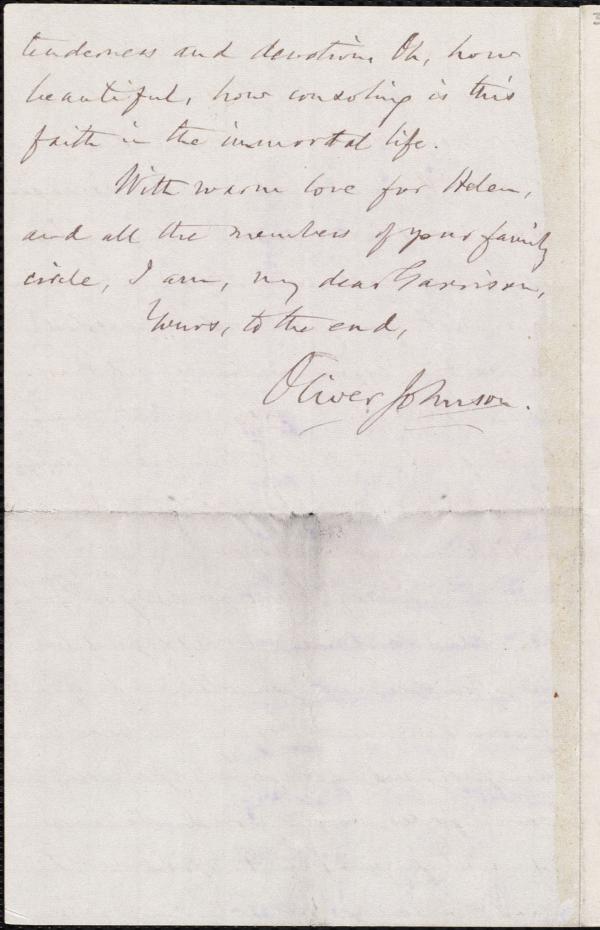 tenderness and devotion. Oh, how
beautiful, how consoling is this
faith in the immortal life.
With warm love for Helen,
and all the members of your family
circle, I am, my dear Garrison,
Yours, to the end,
Oliver Johnson.